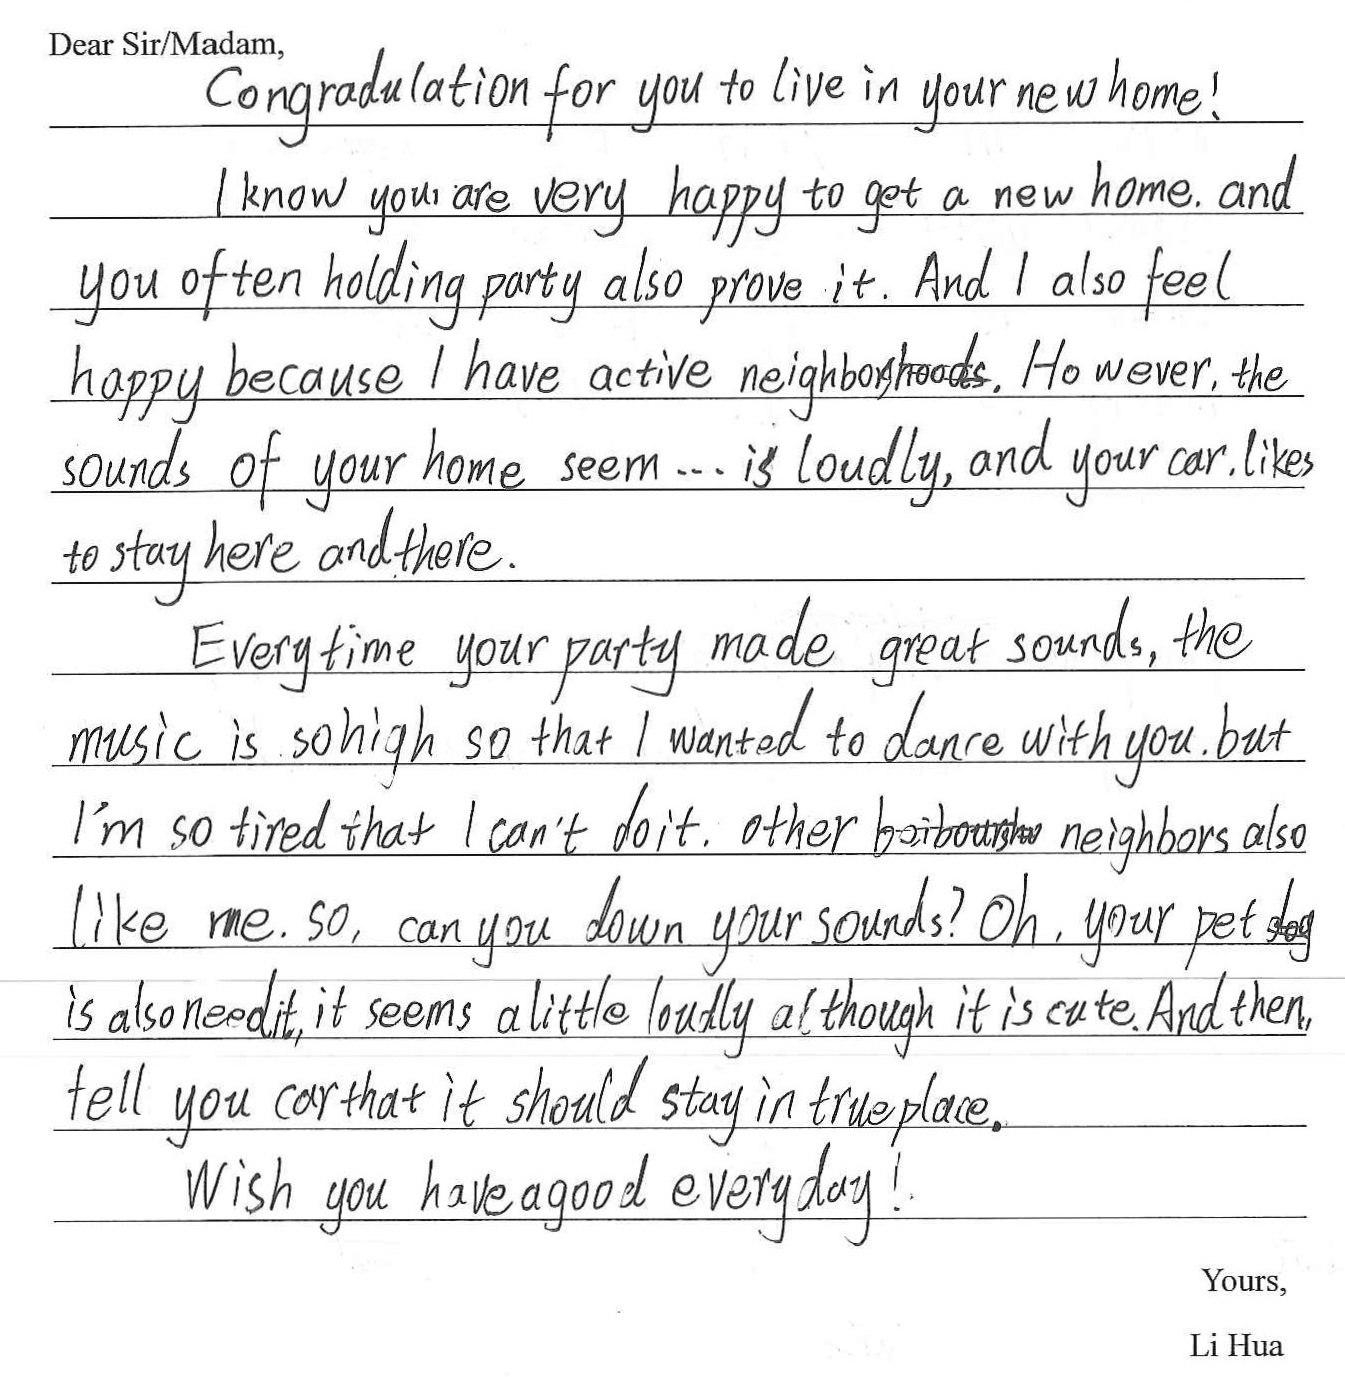 Dear Sir/Madam,
Congradulation for you to live in your new home!
I know you are very happy to get a new home. and
you often holding party also prove it. And I also feel
happy because I have active neighbors. However, the
sounds of your home seem ... is loudly, and your car. likes
to stay here and there.
Everytime your party made great sounds, the
music is so high so that I wanted to dance with you. but
I'm so tired that I can't do it. other neighbors also
like me. so, can you down your sounds? Oh, your pet dog
is also need it, it seems a little loudly although it is cute. And then,
tell you car that it should stay in true place.
Wish you have a good everyday!
Yours,
Li Hua